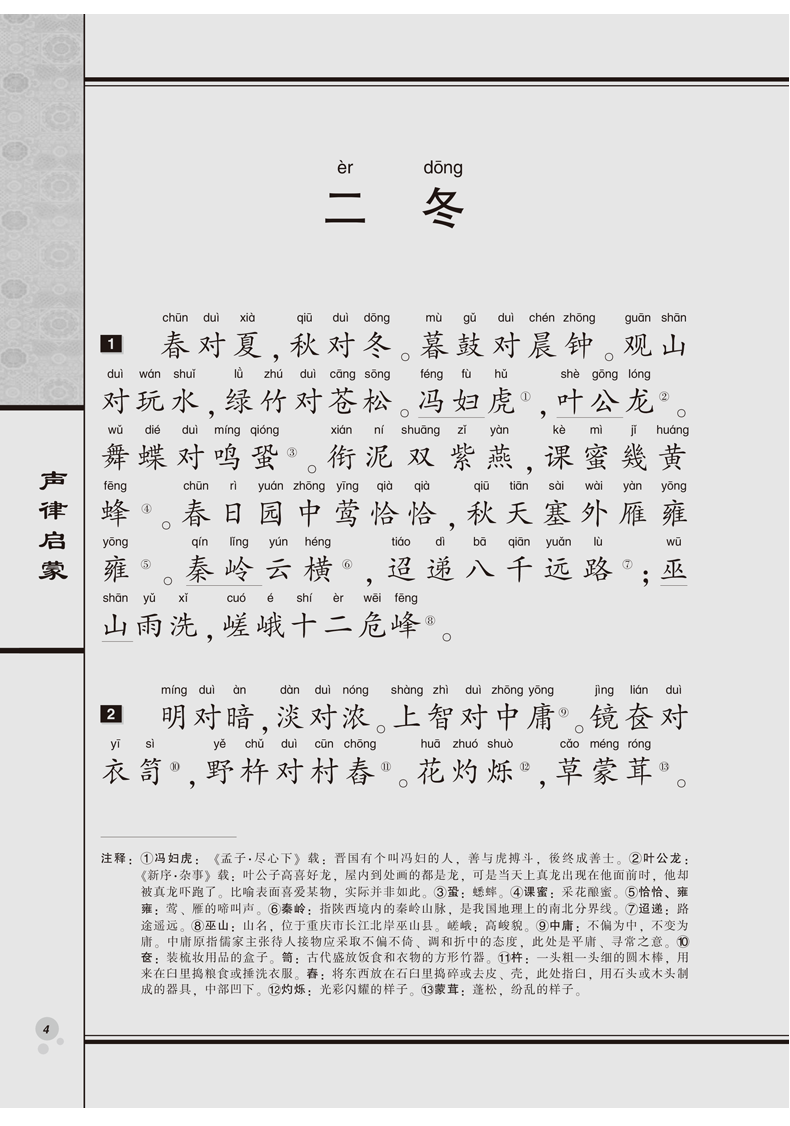 èr dōng
二 冬
chūn duì xià qiū duì dōng mù gǔ duì chén zhōng guān shān
1 春对夏，秋对冬。暮鼓对晨钟。观山
duì wán shuǐ lǜ zhú duì cāng sōng féng fù hǔ shè gōng lóng
对玩水，绿竹对苍松。冯妇虎①，叶公龙②。
wǔ dié duì míng qióng xián ní shuāng zǐ yàn kè mì jǐ huáng
舞蝶对鸣蛩③。衔泥双紫燕，课蜜幾黄
fēng chūn rì yuán zhōng yīng qià qià qiū tiān sài wài yàn yōng
蜂④。春日园中莺恰恰，秋天塞外雁雍
yōng qín lǐng yún héng tiáo dì bā qiān yuǎn lù wū
雍⑤。秦岭云横⑥，迢递八千远路⑦；巫
shān yǔ xǐ cuó é shí èr wēi fēng
山雨洗，嵯峨十二危峰⑧。
míng duì àn dàn duì nóng shàng zhì duì zhōng yōng jìng lián duì
2 明对暗，淡对浓。上智对中庸⑨。镜奁对
yī sì yě chǔ duì cūn chōng huā zhuó shuò cǎo méng róng
衣笥⑩，野杵对村舂⑪。花灼烁⑫，草蒙茸⑬。
注释：①冯妇虎：《孟子·尽心下》载：晋国有个叫冯妇的人，善与虎搏斗，後终成善士。②叶公龙：
《新序·杂事》载：叶公子高喜好龙，屋内到处画的都是龙，可是当天上真龙出现在他面前时，他却
被真龙吓跑了。比喻表面喜爱某物，实际并非如此。③蛩：蟋蟀。④课蜜：采花酿蜜。⑤恰恰、雍
雍：莺、雁的啼叫声。⑥秦岭：指陕西境内的秦岭山脉，是我国地理上的南北分界线。⑦迢递：路
途遥远。⑧巫山：山名，位于重庆市长江北岸巫山县。嵯峨：高峻貌。⑨中庸：不偏为中，不变为
庸。中庸原指儒家主张待人接物应采取不偏不倚、调和折中的态度，此处是平庸、寻常之意。⑩
奁：装梳妆用品的盒子。笥：古代盛放饭食和衣物的方形竹器。⑪杵：一头粗一头细的圆木棒，用
来在臼里捣粮食或捶洗衣服。舂：将东西放在石臼里捣碎或去皮、壳，此处指臼，用石头或木头制
成的器具，中部凹下。⑫灼烁：光彩闪耀的样子。⑬蒙茸：蓬松，纷乱的样子。
声律启蒙
4